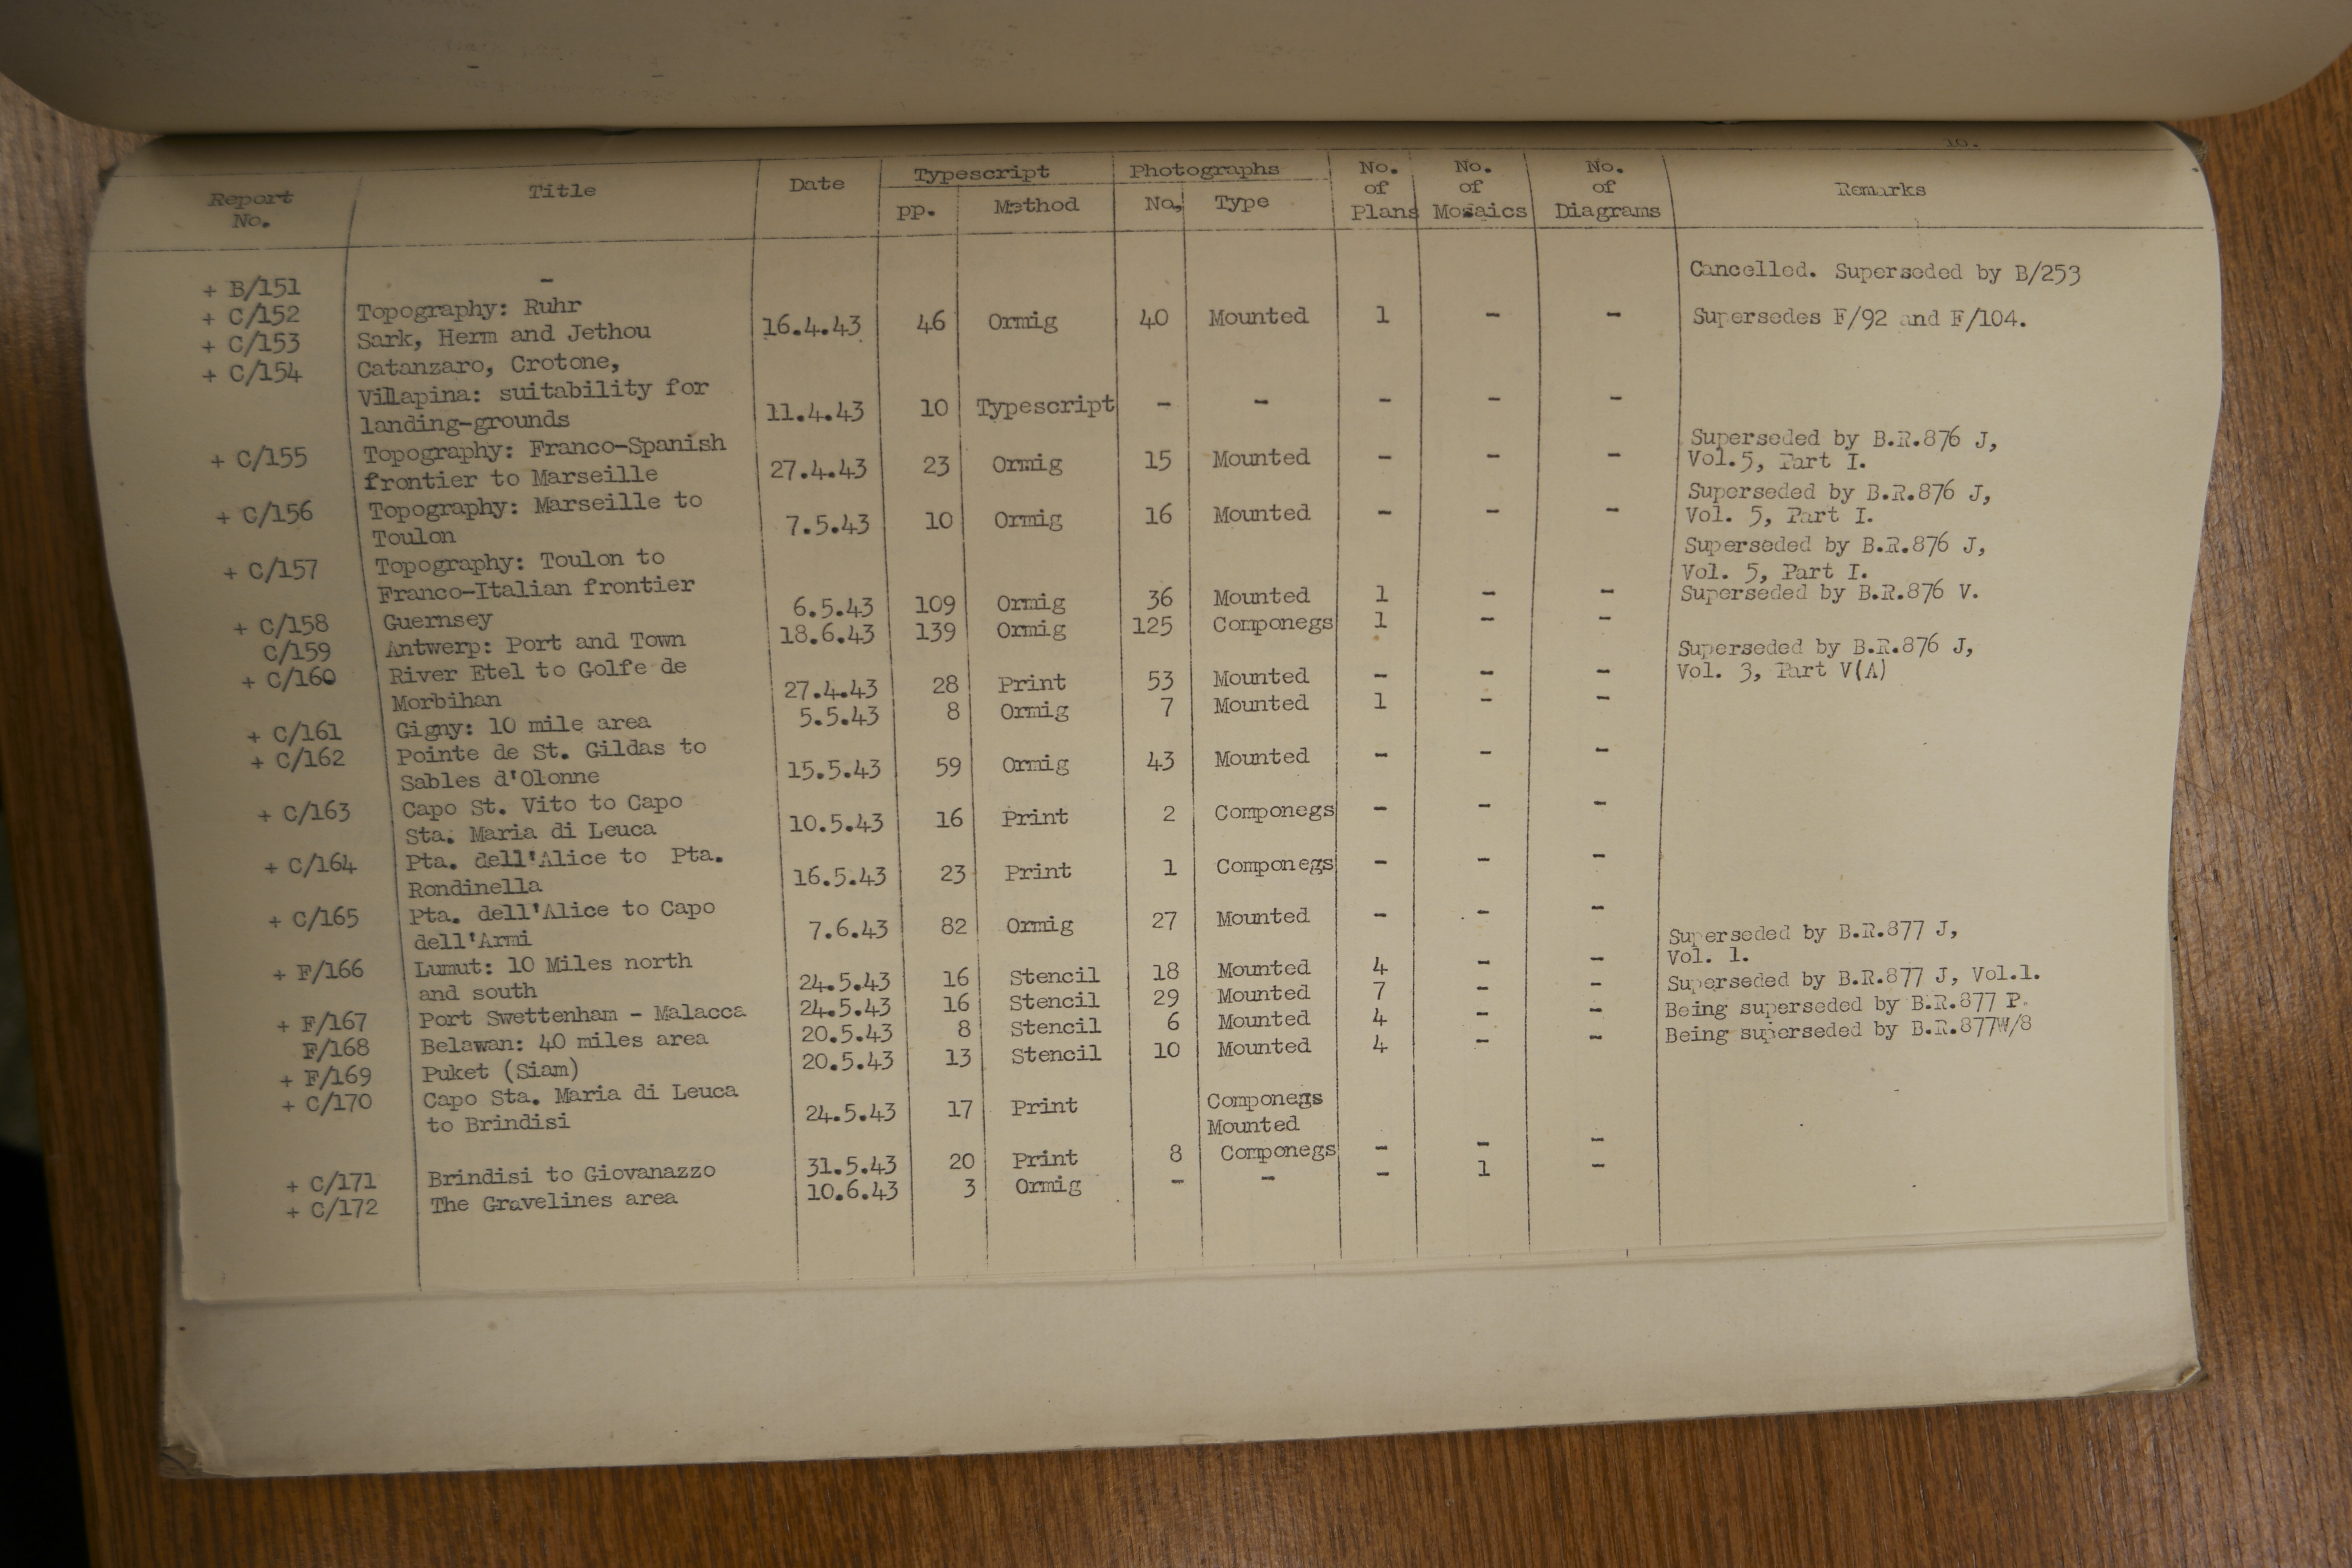 Report No. Title Date Typescript Photographs No. of Plans No. of Mosaics No. of Diagrams Remarks
pp. Method No. Type
+ B/151 - Cancelled. Superseded by B/253
+ C/152 Topography: Ruhr
+ C/153 Sark, Herm and Jethou 16.4.43 46 Ormig 40 Mounted 1 - - Supersedes F/92 and F/104.
+ C/154 Catanzaro, Crotone,
Villapina: suitability for
landing-grounds 11.4.43 10 Typescript - - - - -
+ C/155 Topography: Franco-Spanish Superseded by B.R.876 J,
frontier to Marseille 27.4.43 23 Ormig 15 Mounted - - - Vol.5, Part I.
+ C/156 Topography: Marseille to Superseded by B.R.876 J,
Toulon 7.5.43 10 Ormig 16 Mounted - - - Vol. 5, Part I.
+ C/157 Topography: Toulon to Superseded by B.R.876 J,
Franco-Italian frontier Vol. 5, Part I.
+ C/158 Guernsey 6.5.43 109 Ormig 36 Mounted 1 - - Superseded by B.R.876 V.
C/159 Antwerp: Port and Town 18.6.43 139 Ormig 125 Componegs 1 - -
+ C/160 River Etel to Golfe de Superseded by B.R.876 J,
Morbihan 27.4.43 28 Print 53 Mounted - - - Vol. 3, Part V(A)
+ C/161 Gigny: 10 mile area 5.5.43 8 Ormig 7 Mounted 1 - -
+ C/162 Pointe de St. Gildas to
Sables d'Olonne 15.5.43 59 Ormig 43 Mounted - - -
+ C/163 Capo St. Vito to Capo
Sta. Maria di Leuca 10.5.43 16 Print 2 Componegs - - -
+ C/164 Pta. dell'Alice to Pta.
Rondinella 16.5.43 23 Print 1 Componegs - - -
+ C/165 Pta. dell'Alice to Capo
dell'Armi 7.6.43 82 Ormig 27 Mounted - - -
+ F/166 Lumut: 10 Miles north Superseded by B.R.877 J,
and south 24.5.43 16 Stencil 18 Mounted 4 - - Vol. 1.
+ F/167 Port Swettenham - Malacca 24.5.43 16 Stencil 29 Mounted 7 - - Superseded by B.R.877 J, Vol.1.
F/168 Belawan: 40 miles area 20.5.43 8 Stencil 6 Mounted 4 - - Being superseded by B.R.877 P.
+ F/169 Puket (Siam) 20.5.43 13 Stencil 10 Mounted 4 - - Being superseded by B.R.877W/8
+ C/170 Capo Sta. Maria di Leuca
to Brindisi 24.5.43 17 Print Componegs
Mounted
+ C/171 Brindisi to Giovanazzo 31.5.43 20 Print 8 Componegs - - -
+ C/172 The Gravelines area 10.6.43 3 Ormig - - - 1 -